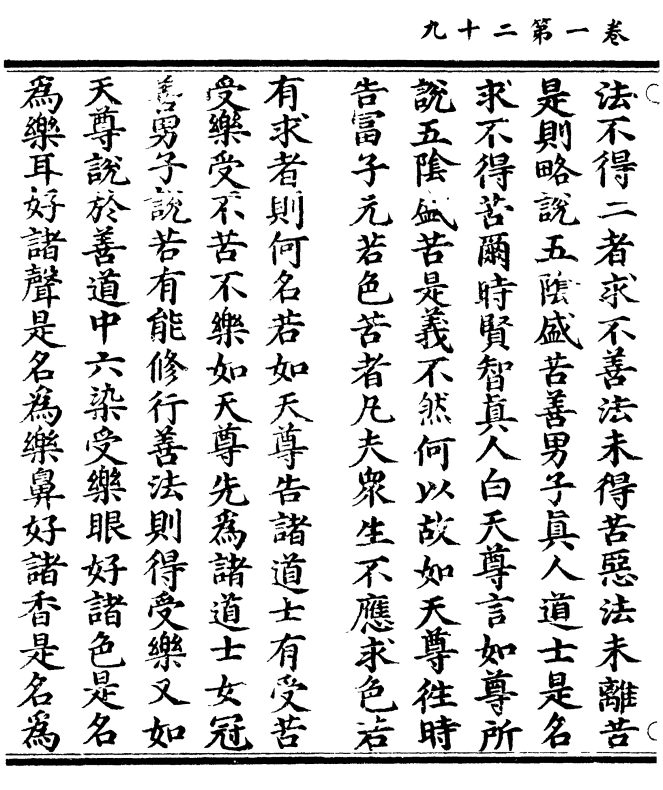 卷一第二十九
法不得二者求不善法未得苦惡法未離苦
是則略說五陰盛苦善男子眞人道士是名
求不得苦爾時賢智眞人白天尊言如尊所
說五陰盛苦是義不然何以故如天尊徃時
告冨子元若色苦者凡夫衆生不應求色若
有求者則何名若如天尊告諸道士有受苦
受樂受不苦不樂如天尊先爲諸道士女冠
善男子說若有能修行善法則得受樂又如
天尊說於善道中六染受樂眼好諸色是名
爲樂耳好諸聲是名爲樂鼻好諸香是名爲